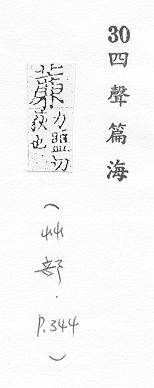 30四聲篇海
力盥切
也
（艸部．P.344）